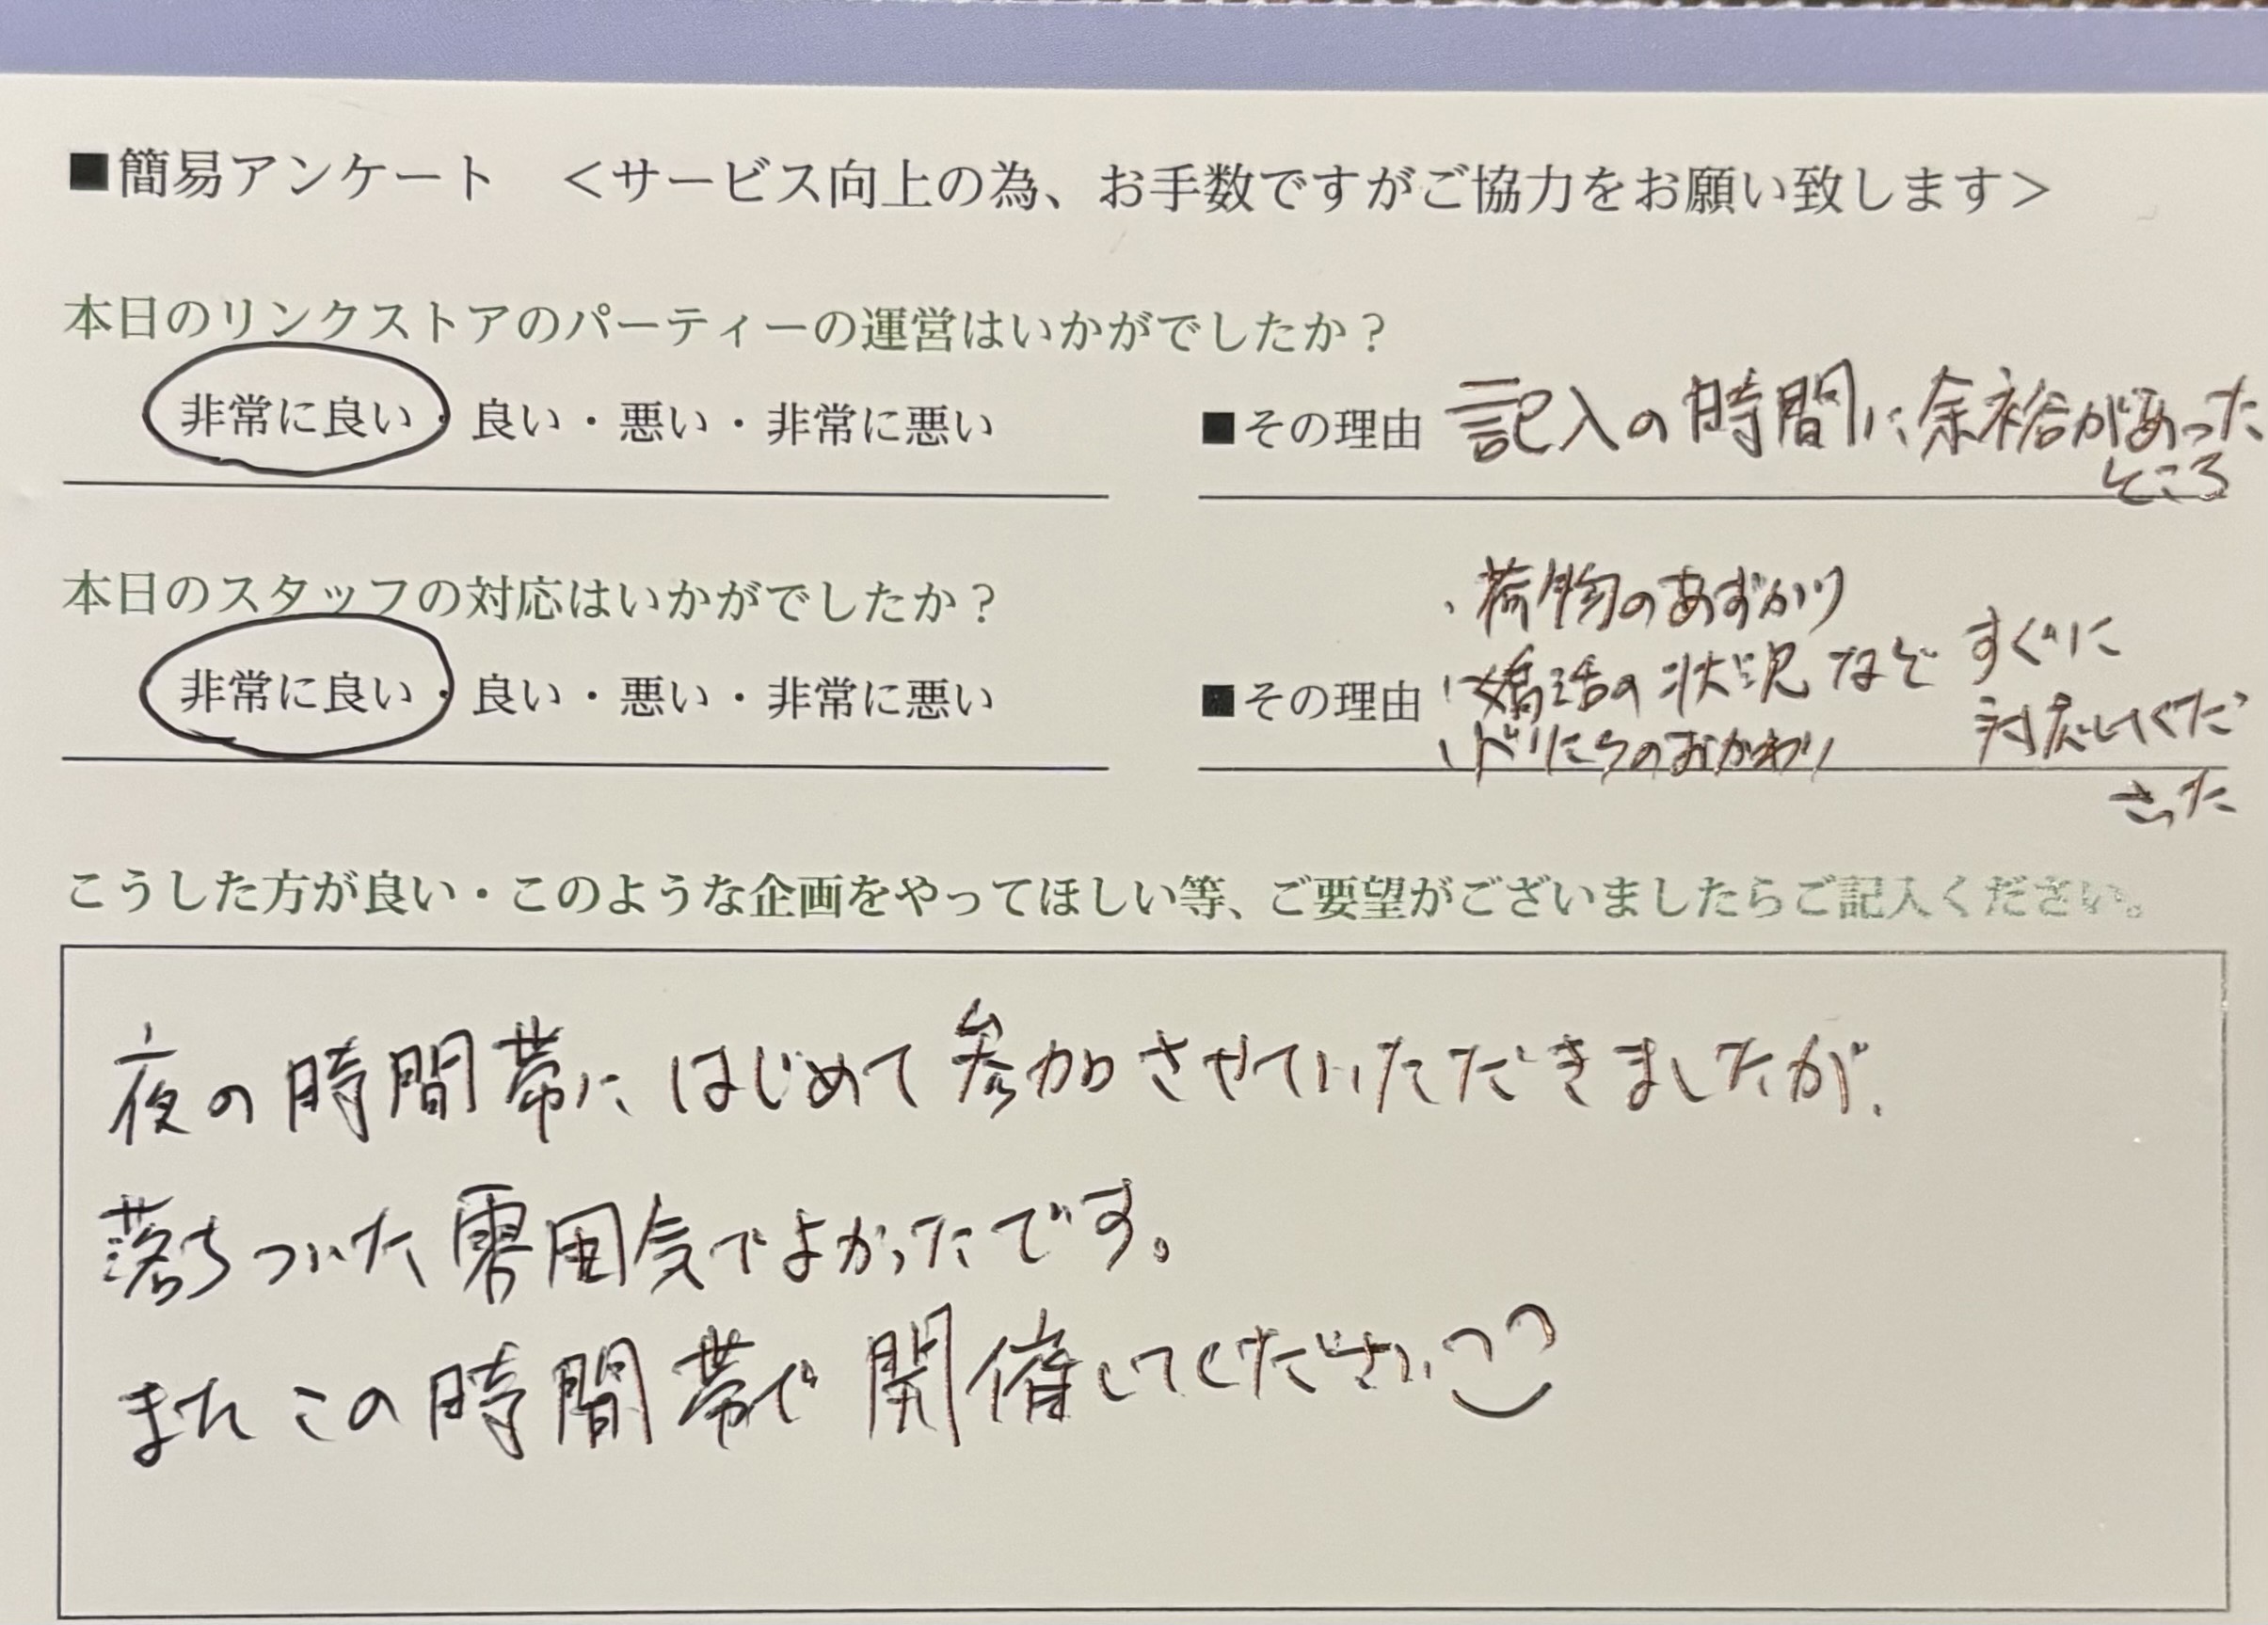 ■簡易アンケート　＜サービス向上の為、お手数ですがご協力をお願い致します＞
本日のリンクストアのパーティーの運営はいかがでしたか？
非常に良い・良い・悪い・非常に悪い
■その理由 記入の時間に余裕があった
ところ
本日のスタッフの対応はいかがでしたか？
非常に良い・良い・悪い・非常に悪い
■その理由
、荷物のあずかり
、婚活の状況 など すぐに
のおかわり
対応してくだ
さった
こうした方が良い・このような企画をやってほしい等、ご要望がございましたらご記入ください。
夜の時間帯に はじめて参加させていただきましたが、
落ちついた雰囲気でよかったです。
またこの時間帯で開催してください